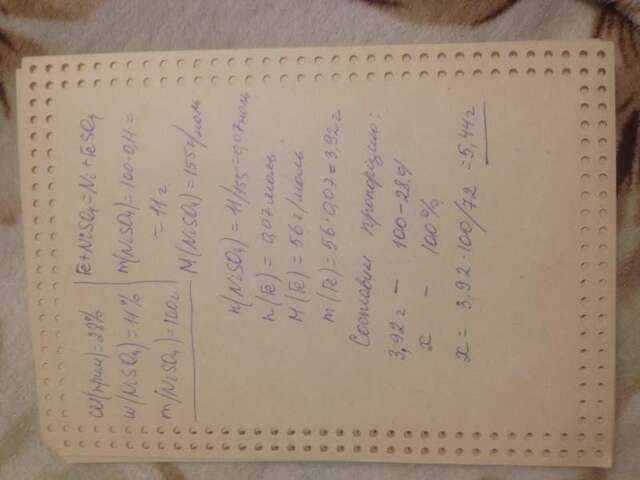 ω(прим)=28%
ω(NiSO4)=11%
m(NiSO4)=100г
Fe+NiSO4=Ni+FeSO4
m(NiSO4)=100·0,11=
=11г
M(NiSO4)=155г/моль
n(NiSO4)=11/155=0,07моль
n(Fe)=0,07моль
M(Fe)=56г/моль
m(Fe)=56·0,07=3,92г
Составим пропорцию:
3,92г - 100-28%
x - 100%
x = 3,92·100/72 = 5,44г